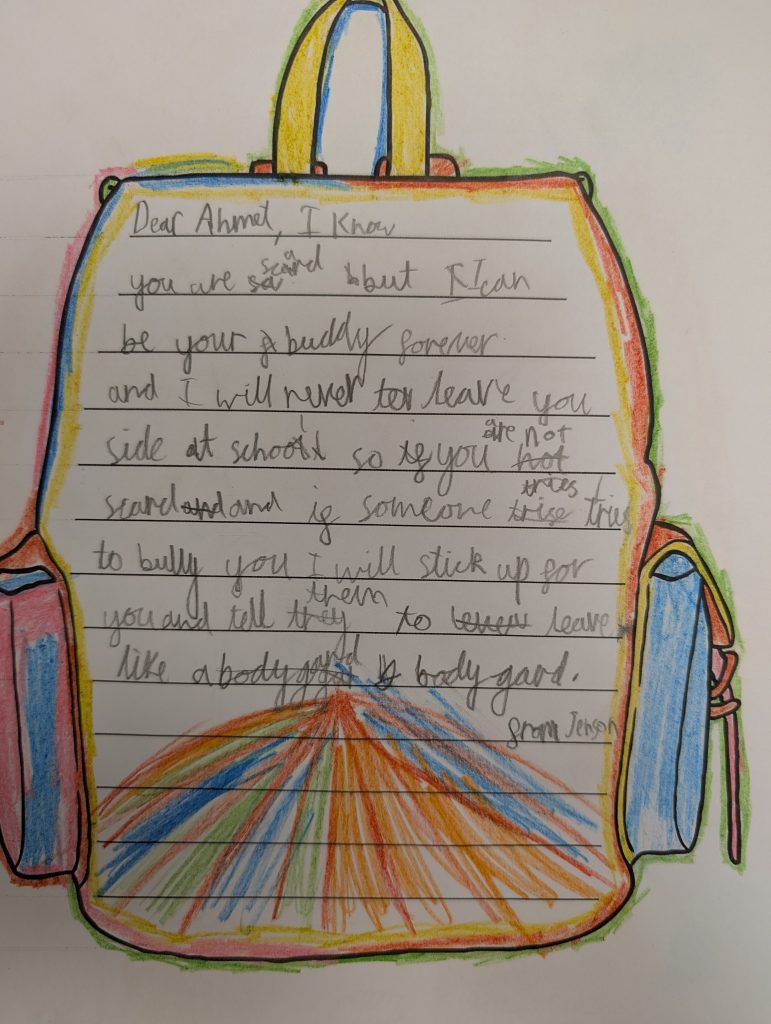 Dear Ahmet, I know
you are scard but I can
be your buddy forever
and I will never leave you
side at school so if you are not
scard and if someone tries
to bully you I will stick up for
you and tell them to leave
like a body gard.
from Jenson